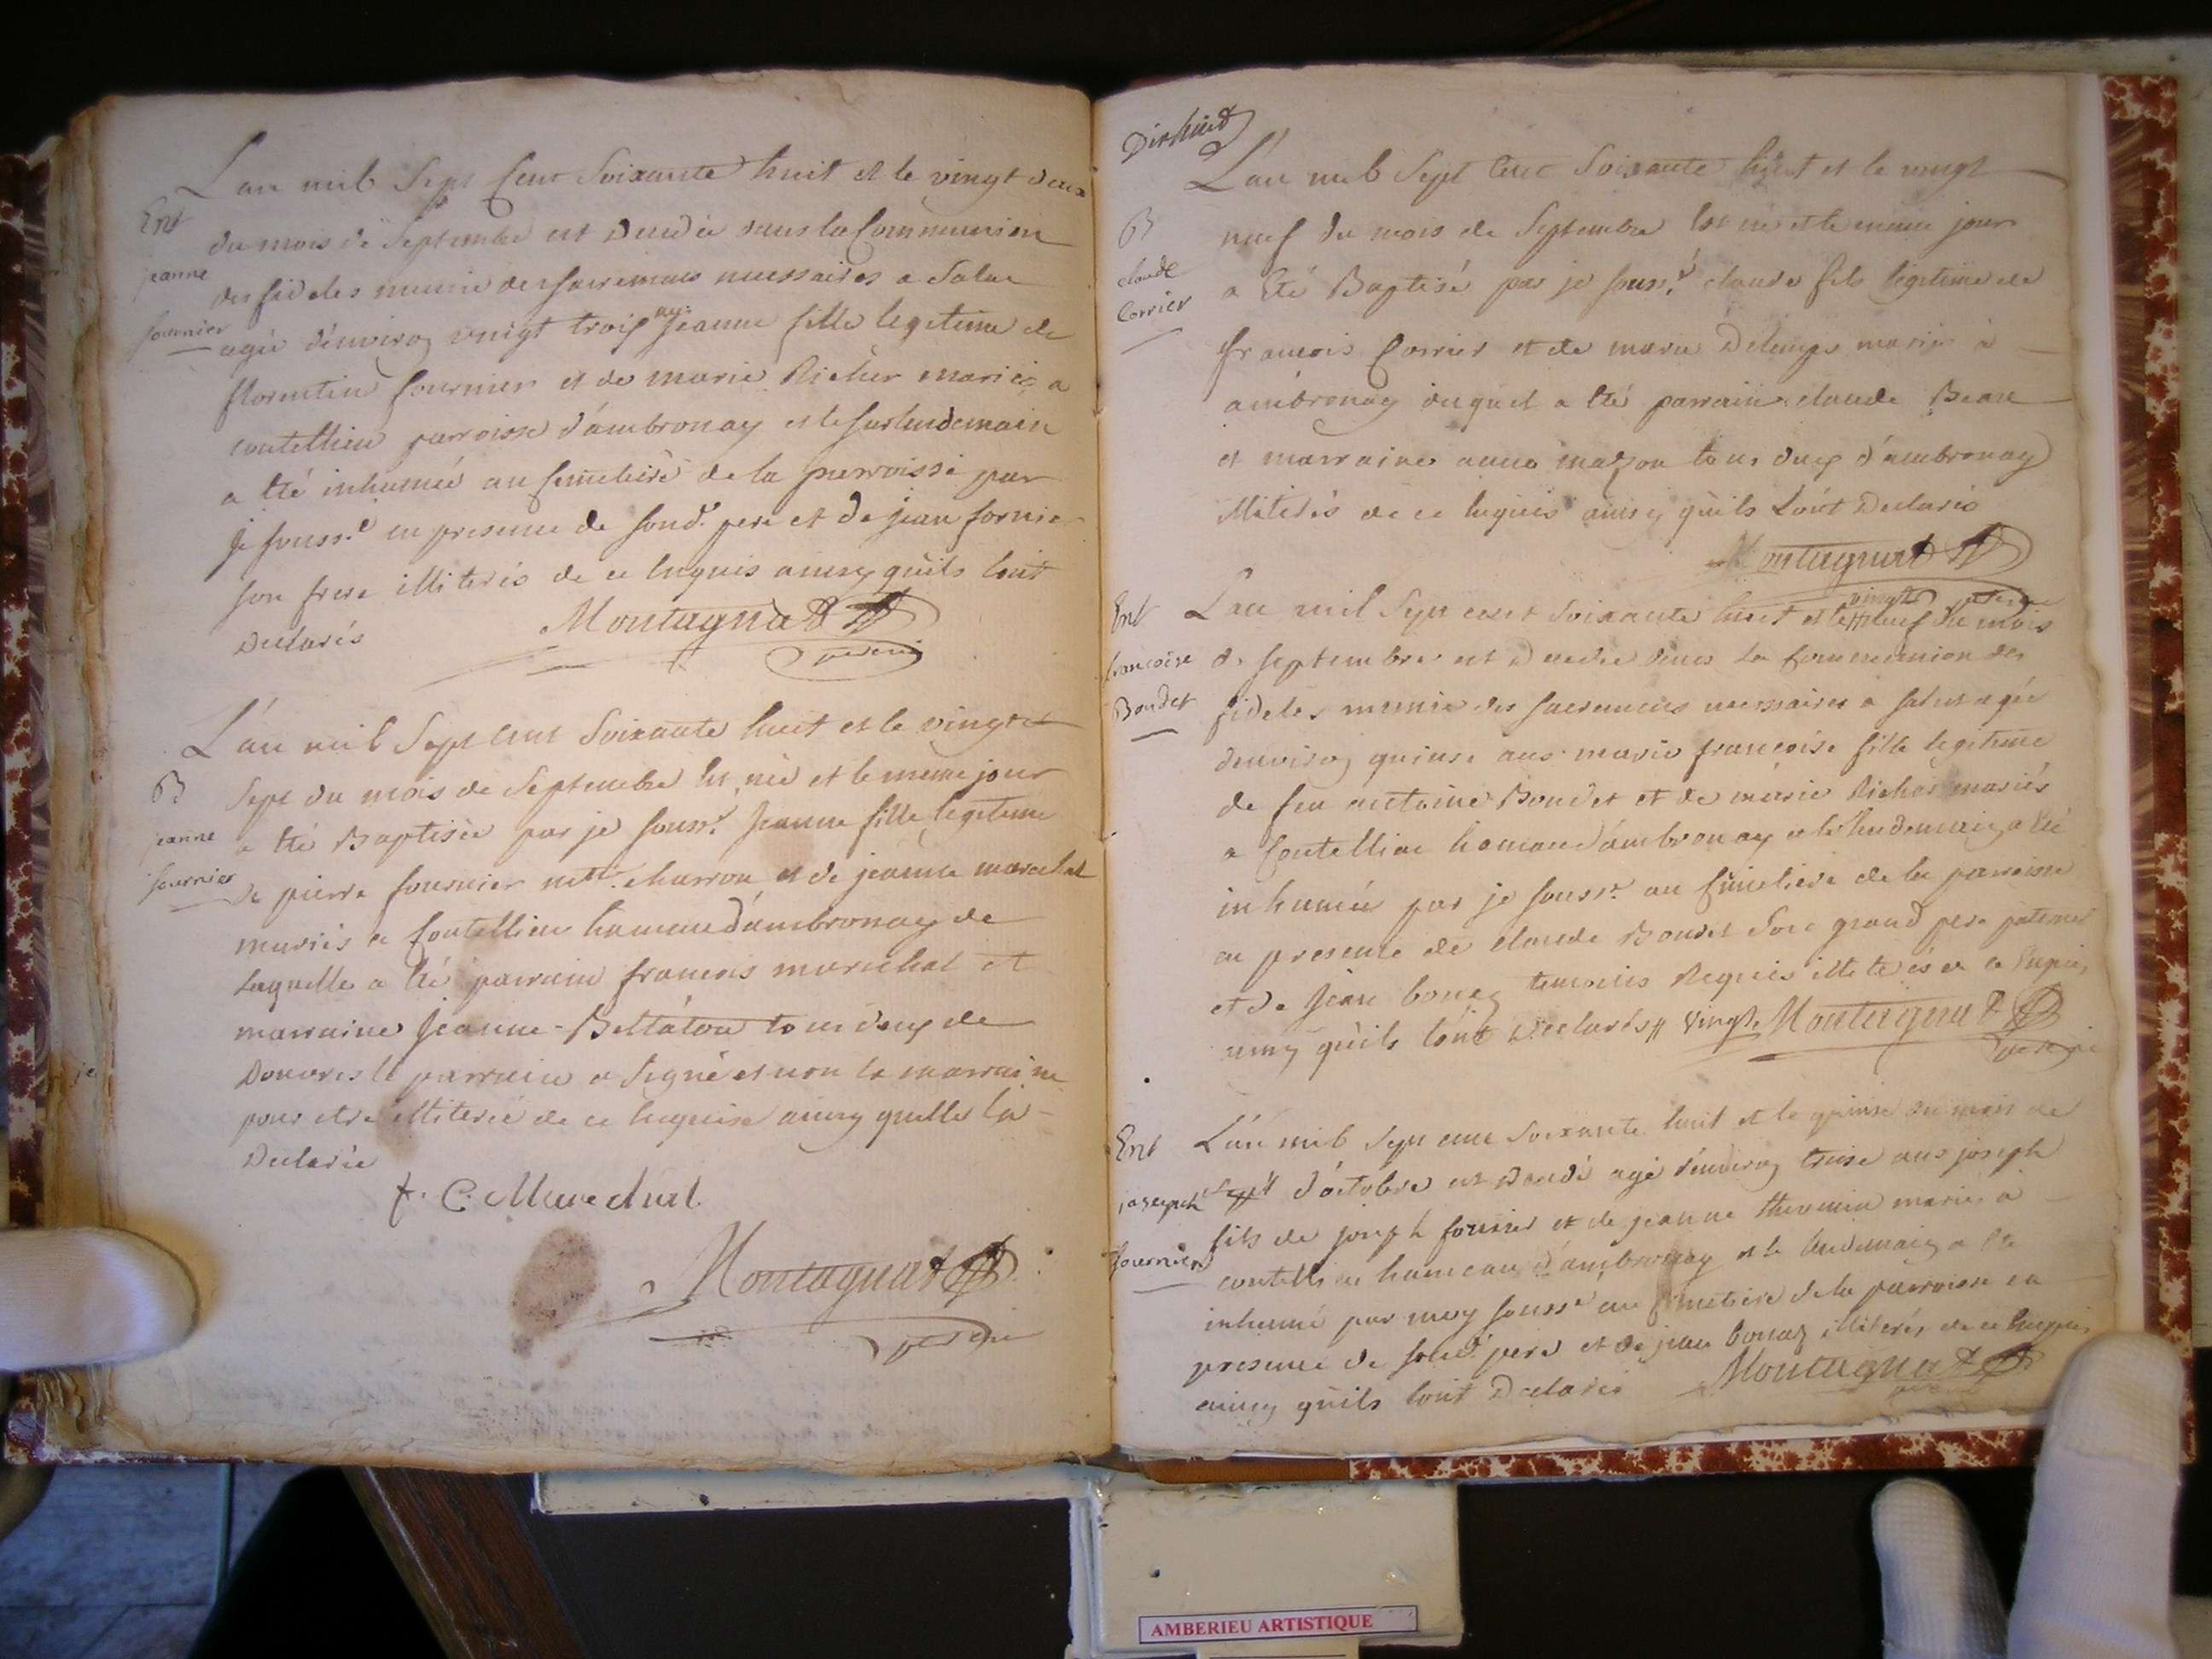 L'an mil Sept Cent Soixante huit et le vingt deux
Ent
du mois de Septembre est Decedée dans la Communion
jeanne
des fideles munie des sacremens necessaires a Salut
fournier
agée d'environ vingt trois ans Jeanne fille legitime de
florentin fournier et de marie Richer mariés a
coutellieu parroisse d'ambronay et le surlendemain
a été inhumée au Cimetiere de la parroisse par
je souss.é en presence de sond. pere et de jean fornier
son frere illiterés de ce Enquis ainsy qu'ils l'ont
Declarés Montagnat
vicaire
L'an mil Sept Cent Soixante huit et le vingt
B
Sept du mois de Septembre est née et le meme jour
jeanne
a été Baptisée par je souss.é Jeanne fille legitime
fournier
de pierre fournier m.tre charron et de jeanne marechal
mariés a Coutellieu hameau d'ambronay de
Laquelle a été parrain francois marechal et
marraine Jeanne Bellaton tous deux de
Douvres le parrain a Signé et non la marraine
pour etre illiterée de ce Enquise ainsy quelle la
Declarée
f. C. Marechal
Montagnat
vicaire
Dixhuit
L'an mil Sept Cent Soixante huit et le vingt
B
neuf du mois de Septembre est né et le meme jour
claude
a Eté Baptisé par je souss.é claude fils legitime de
Corrier
francois Corrier et de marie Delouge mariés à
ambronay duquel a été parrain claude Beau
et marraine anne mazon tous deux d'ambronay
illiterés de ce Enquis ainsy qu'ils L'ont Declarés
Montagnat
vicaire
Ent
L'an mil Sept cent Soixante huit et le vingt neuf du mois
francoise
de septembre est Decedée dans La Communion des
Boudet
fideles munie des Sacremens necessaires a salut agée
denviron quinse ans marie françoise fille legitime
de feu antoine Boudet et de marie Richer mariés
a Coutellieu hameau d'ambronay et le lendemain a été
inhumée par je souss.é au Cimetiere de la parroisse
en presence de claude Boudet Son grand pere paternel
et de Jean bouez temoins Requis illiterés de ce Enquis
ainsy qu'ils l'ont Declarés // vingt Montagnat
vicaire
Ent
L'an mil Sept cent Soixante huit et le quinse du mois de
joseph
d'octobre est Decedé agé d'environ treise ans joseph
fils de joseph fournier et de jeanne thevenin mariés à
fournier
coutellieu hameau d'ambronay et le lendemain a été
inhumé par moy souss.é au Cimetiere de la parroisse en
presence de sond. pere et de jean bouez illiterés de ce Enquis
ainsy qu'ils l'ont Declarés Montagnat
AMBERIEU ARTISTIQUE